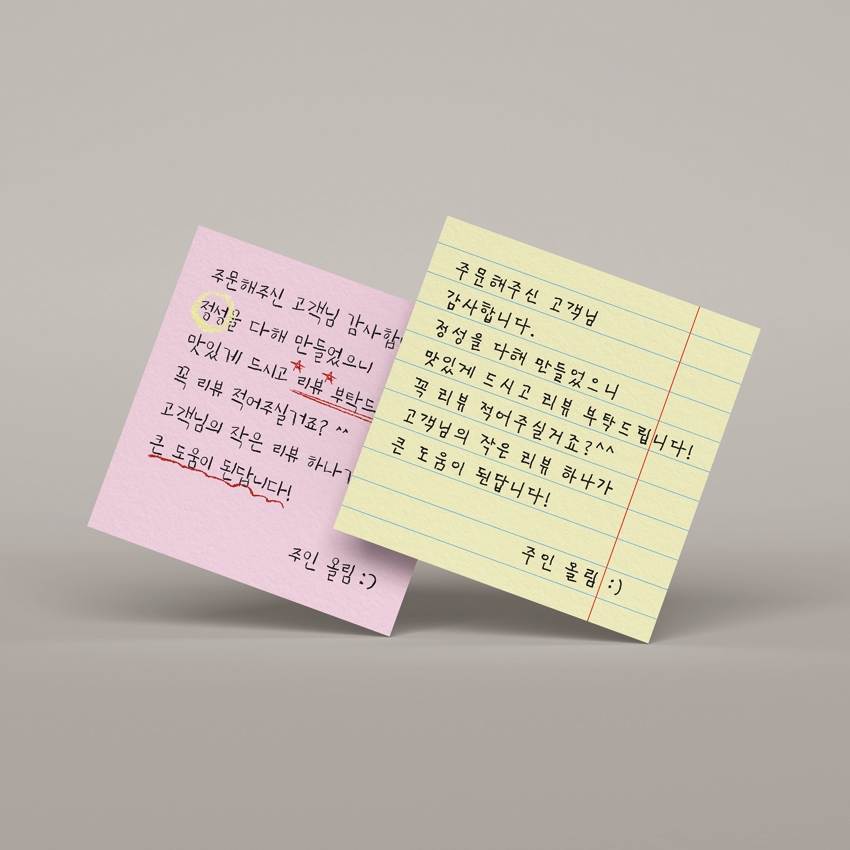 주문해주신 고객님 감사합
정성을 다해 만들었으니
맛있게 드시고 리뷰 부탁드
꼭 리뷰 적어주실거죠? ^^
고객님의 작은 리뷰 하나가
큰 도움이 된답니다!
주인 올림 :)
주문해주신 고객님
감사합니다.
정성을 다해 만들었으니
맛있게 드시고 리뷰 부탁드립니다!
꼭 리뷰 적어주실거죠?^^
고객님의 작은 리뷰 하나가
큰 도움이 된답니다!
주인 올림 :)